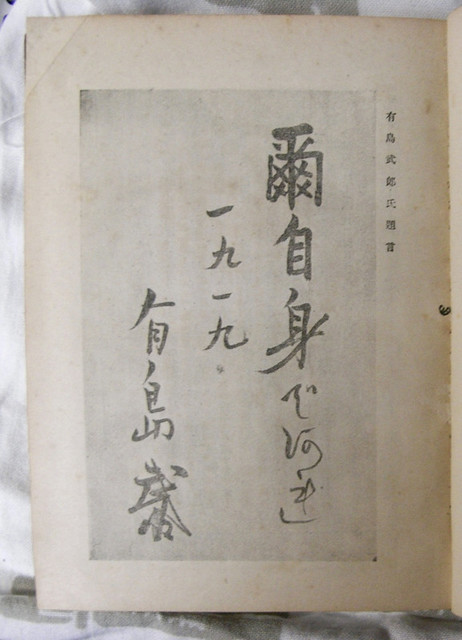 有島武郎氏題言
爾自身で阿連
一九一九
有島武郎